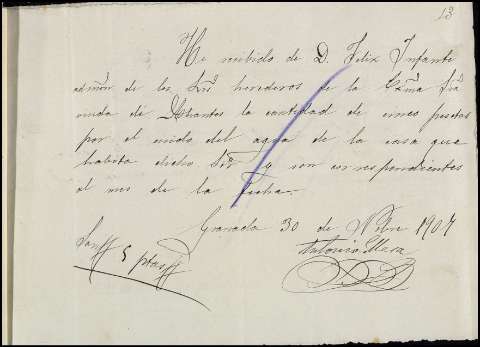 13
He recibido de D. Felix Infante
admón de los Srs herederos de la Exma Sra
viuda de la cantidad de cinco pesetas
por el del agua de la casa que
habita dicho Sor y son correspondientes
al mes de la fecha.
Granada 30 de Nbre 1907
Son 5 ptas
Antonio